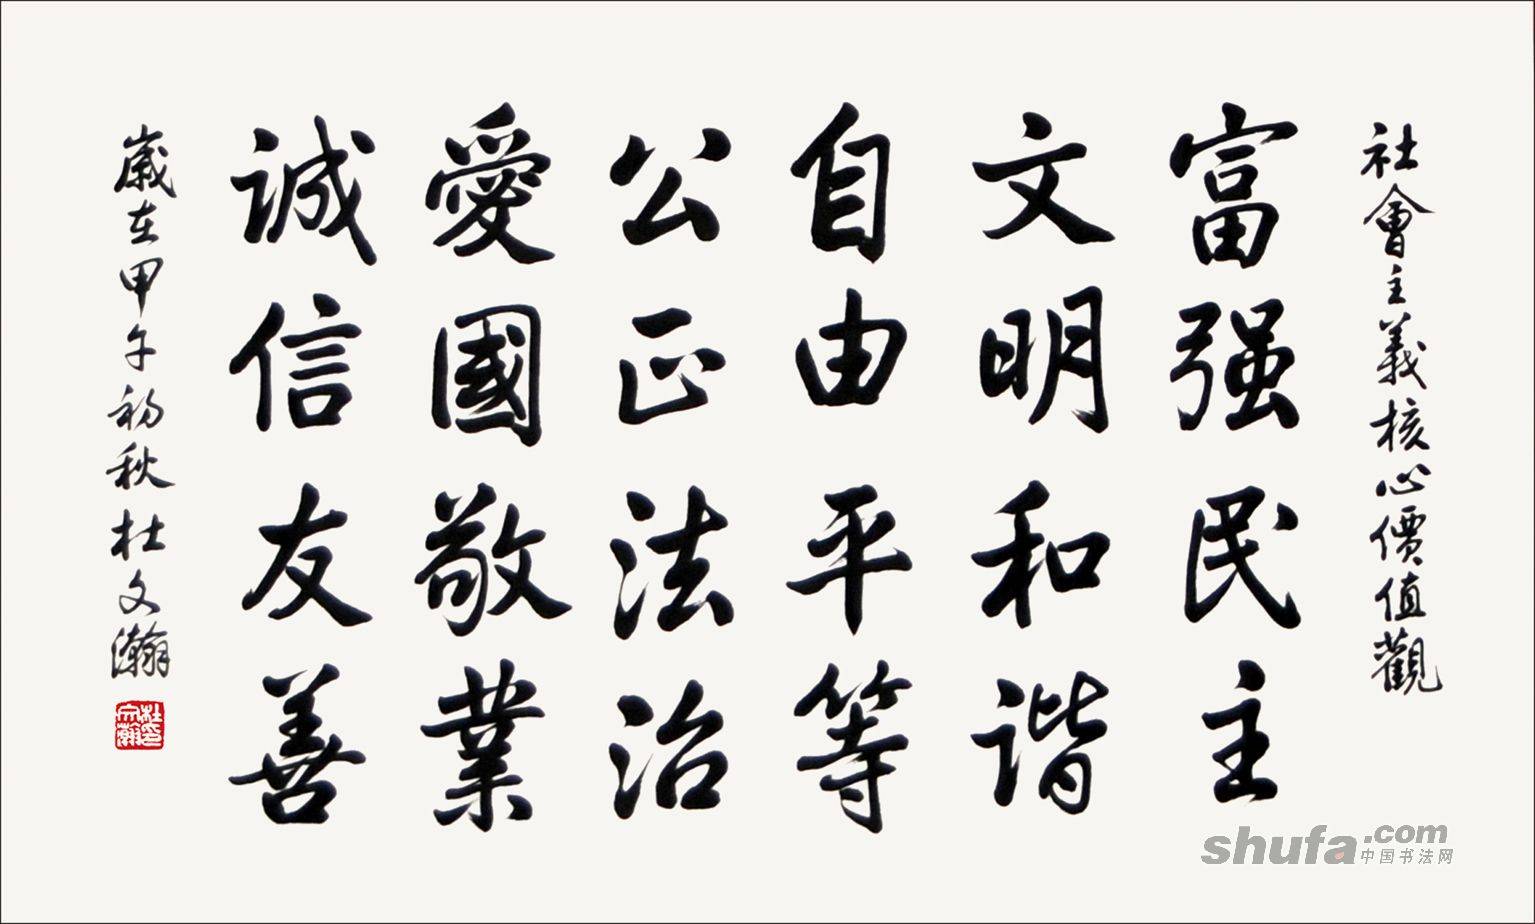 社會主義核心價值觀
富强民主
文明和諧
自由平等
公正法治
愛國敬業
誠信友善
歲在甲午初秋杜文瀚
杜文瀚印
shufa.com
中国书法网